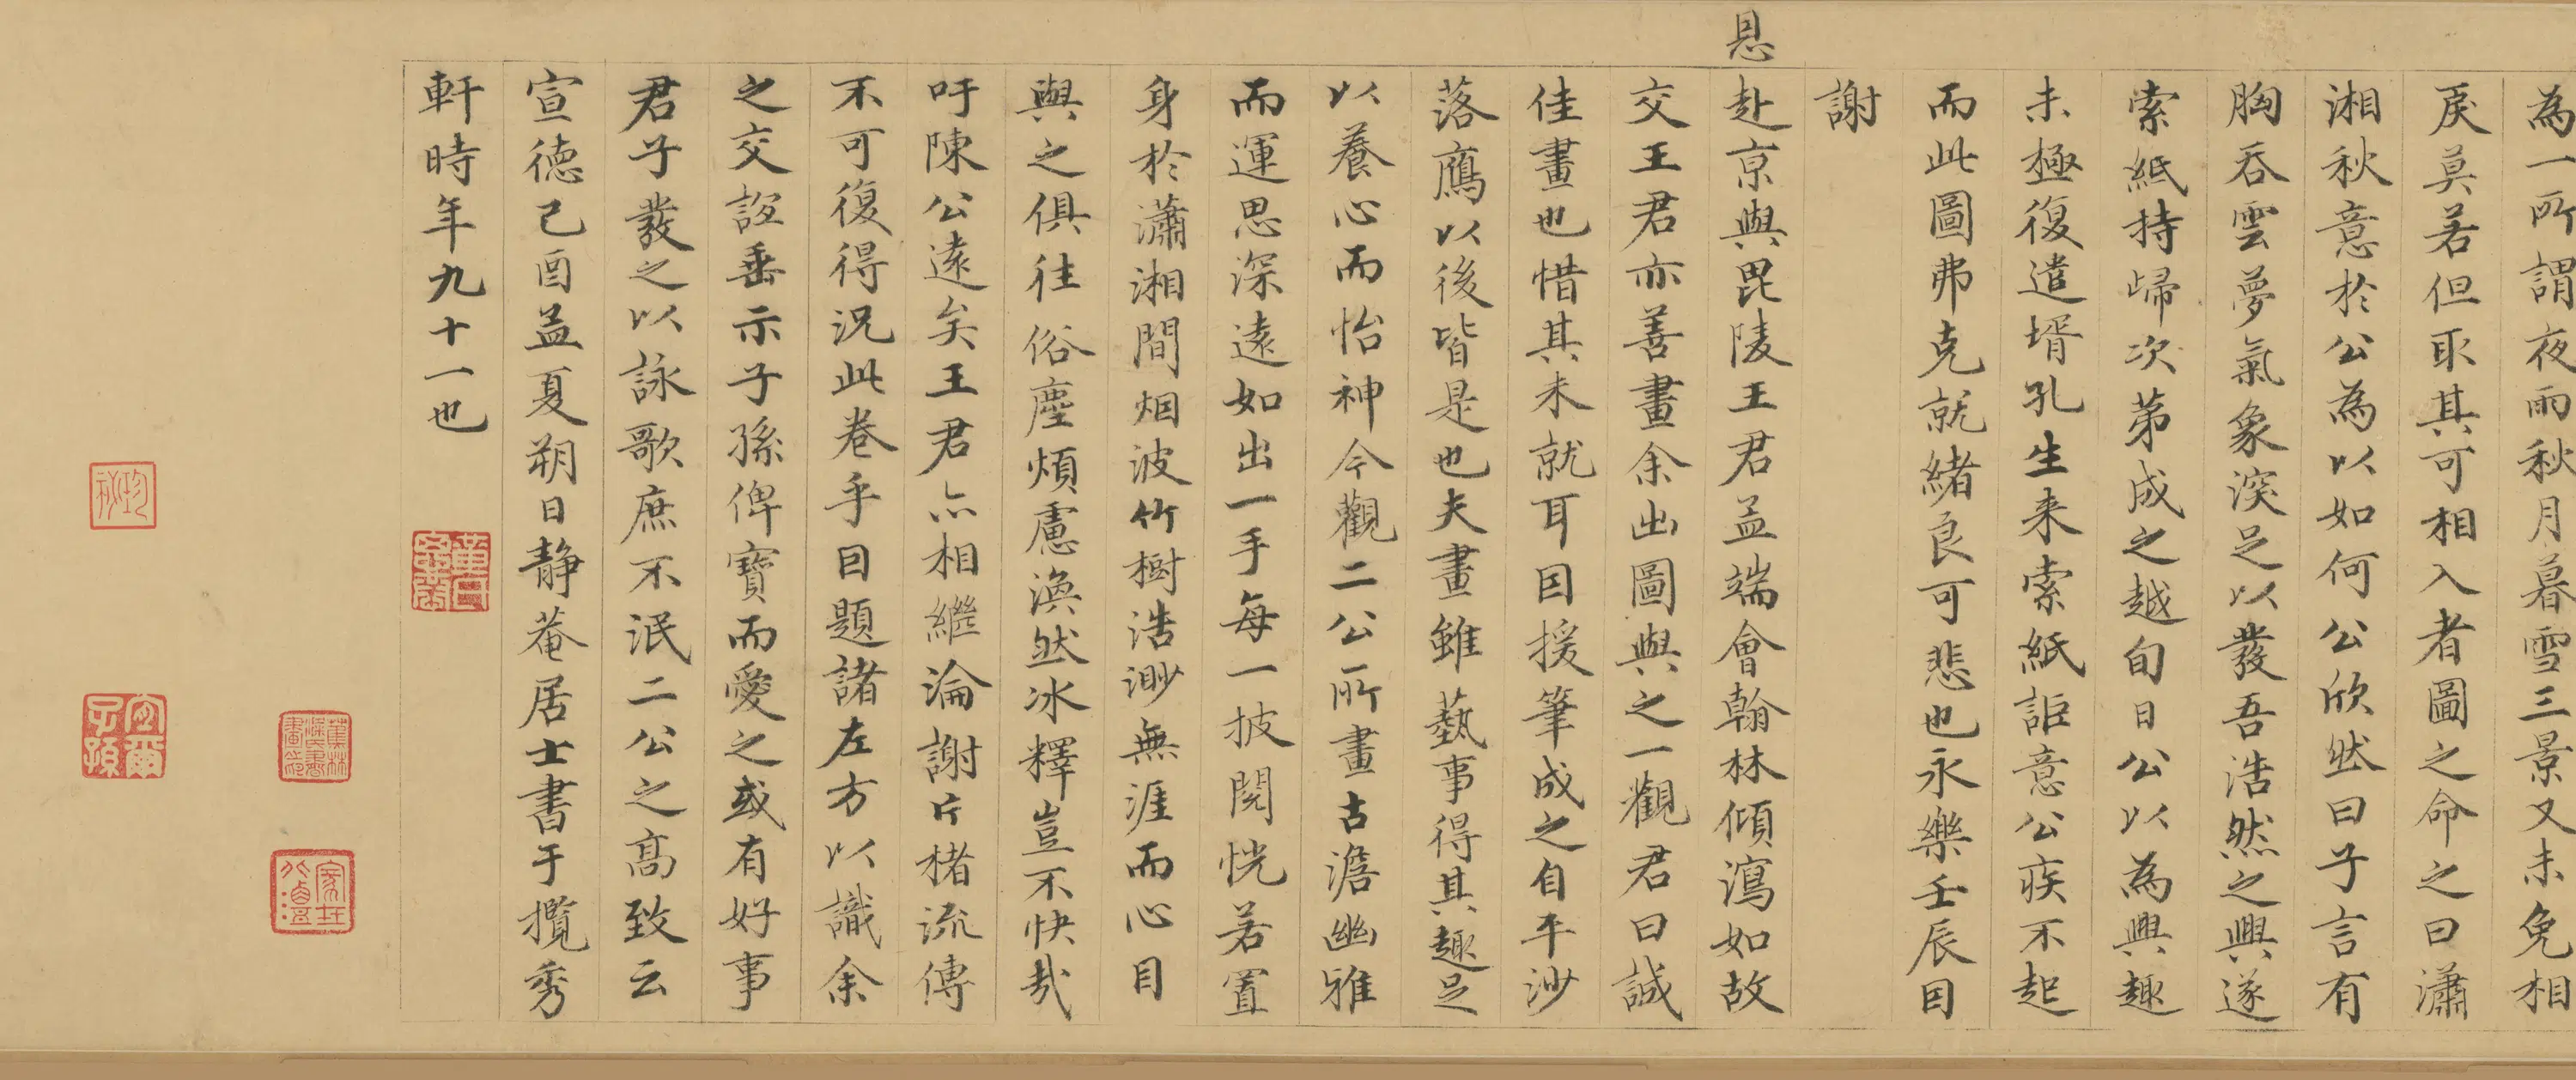 為一所謂夜雨秋月暮雪三景又未免相
戾莫若但取其可相入者圖之命之曰瀟
湘秋意於公為以如何公欣然曰子言有
胸吞雲夢氣象深足以發吾浩然之興遂
索紙持歸次第成之越旬日公以為興趣
未極復遣壻孔生来索紙詎意公疾不起
而此圖弗克就緒良可悲也永樂壬辰因
謝
恩
赴京與毘陵王君孟端會翰林傾瀉如故
交王君亦善畫余出圖與之一觀君曰誠
佳畫也惜其未就耳因援筆成之自平沙
落鴈以後皆是也夫畫雖藝事得其趣足
以養心而怡神今觀二公所畫古澹幽雅
而運思深遠如出一手每一披閱恍若置
身於瀟湘間烟波竹樹浩渺無涯而心目
與之俱往俗塵煩慮渙然冰釋豈不快哉
吁陳公遠矣王君亦相繼淪謝片楮流傳
不可復得況此卷乎因題諸左方以識余
之交誼垂示子孫俾寶而愛之或有好事
君子發之以詠歌庶不泯二公之高致云
宣德己酉孟夏朔日靜菴居士書于攬秀
軒時年九十一也
宜爾子孫
蕉林梁氏書畫之印